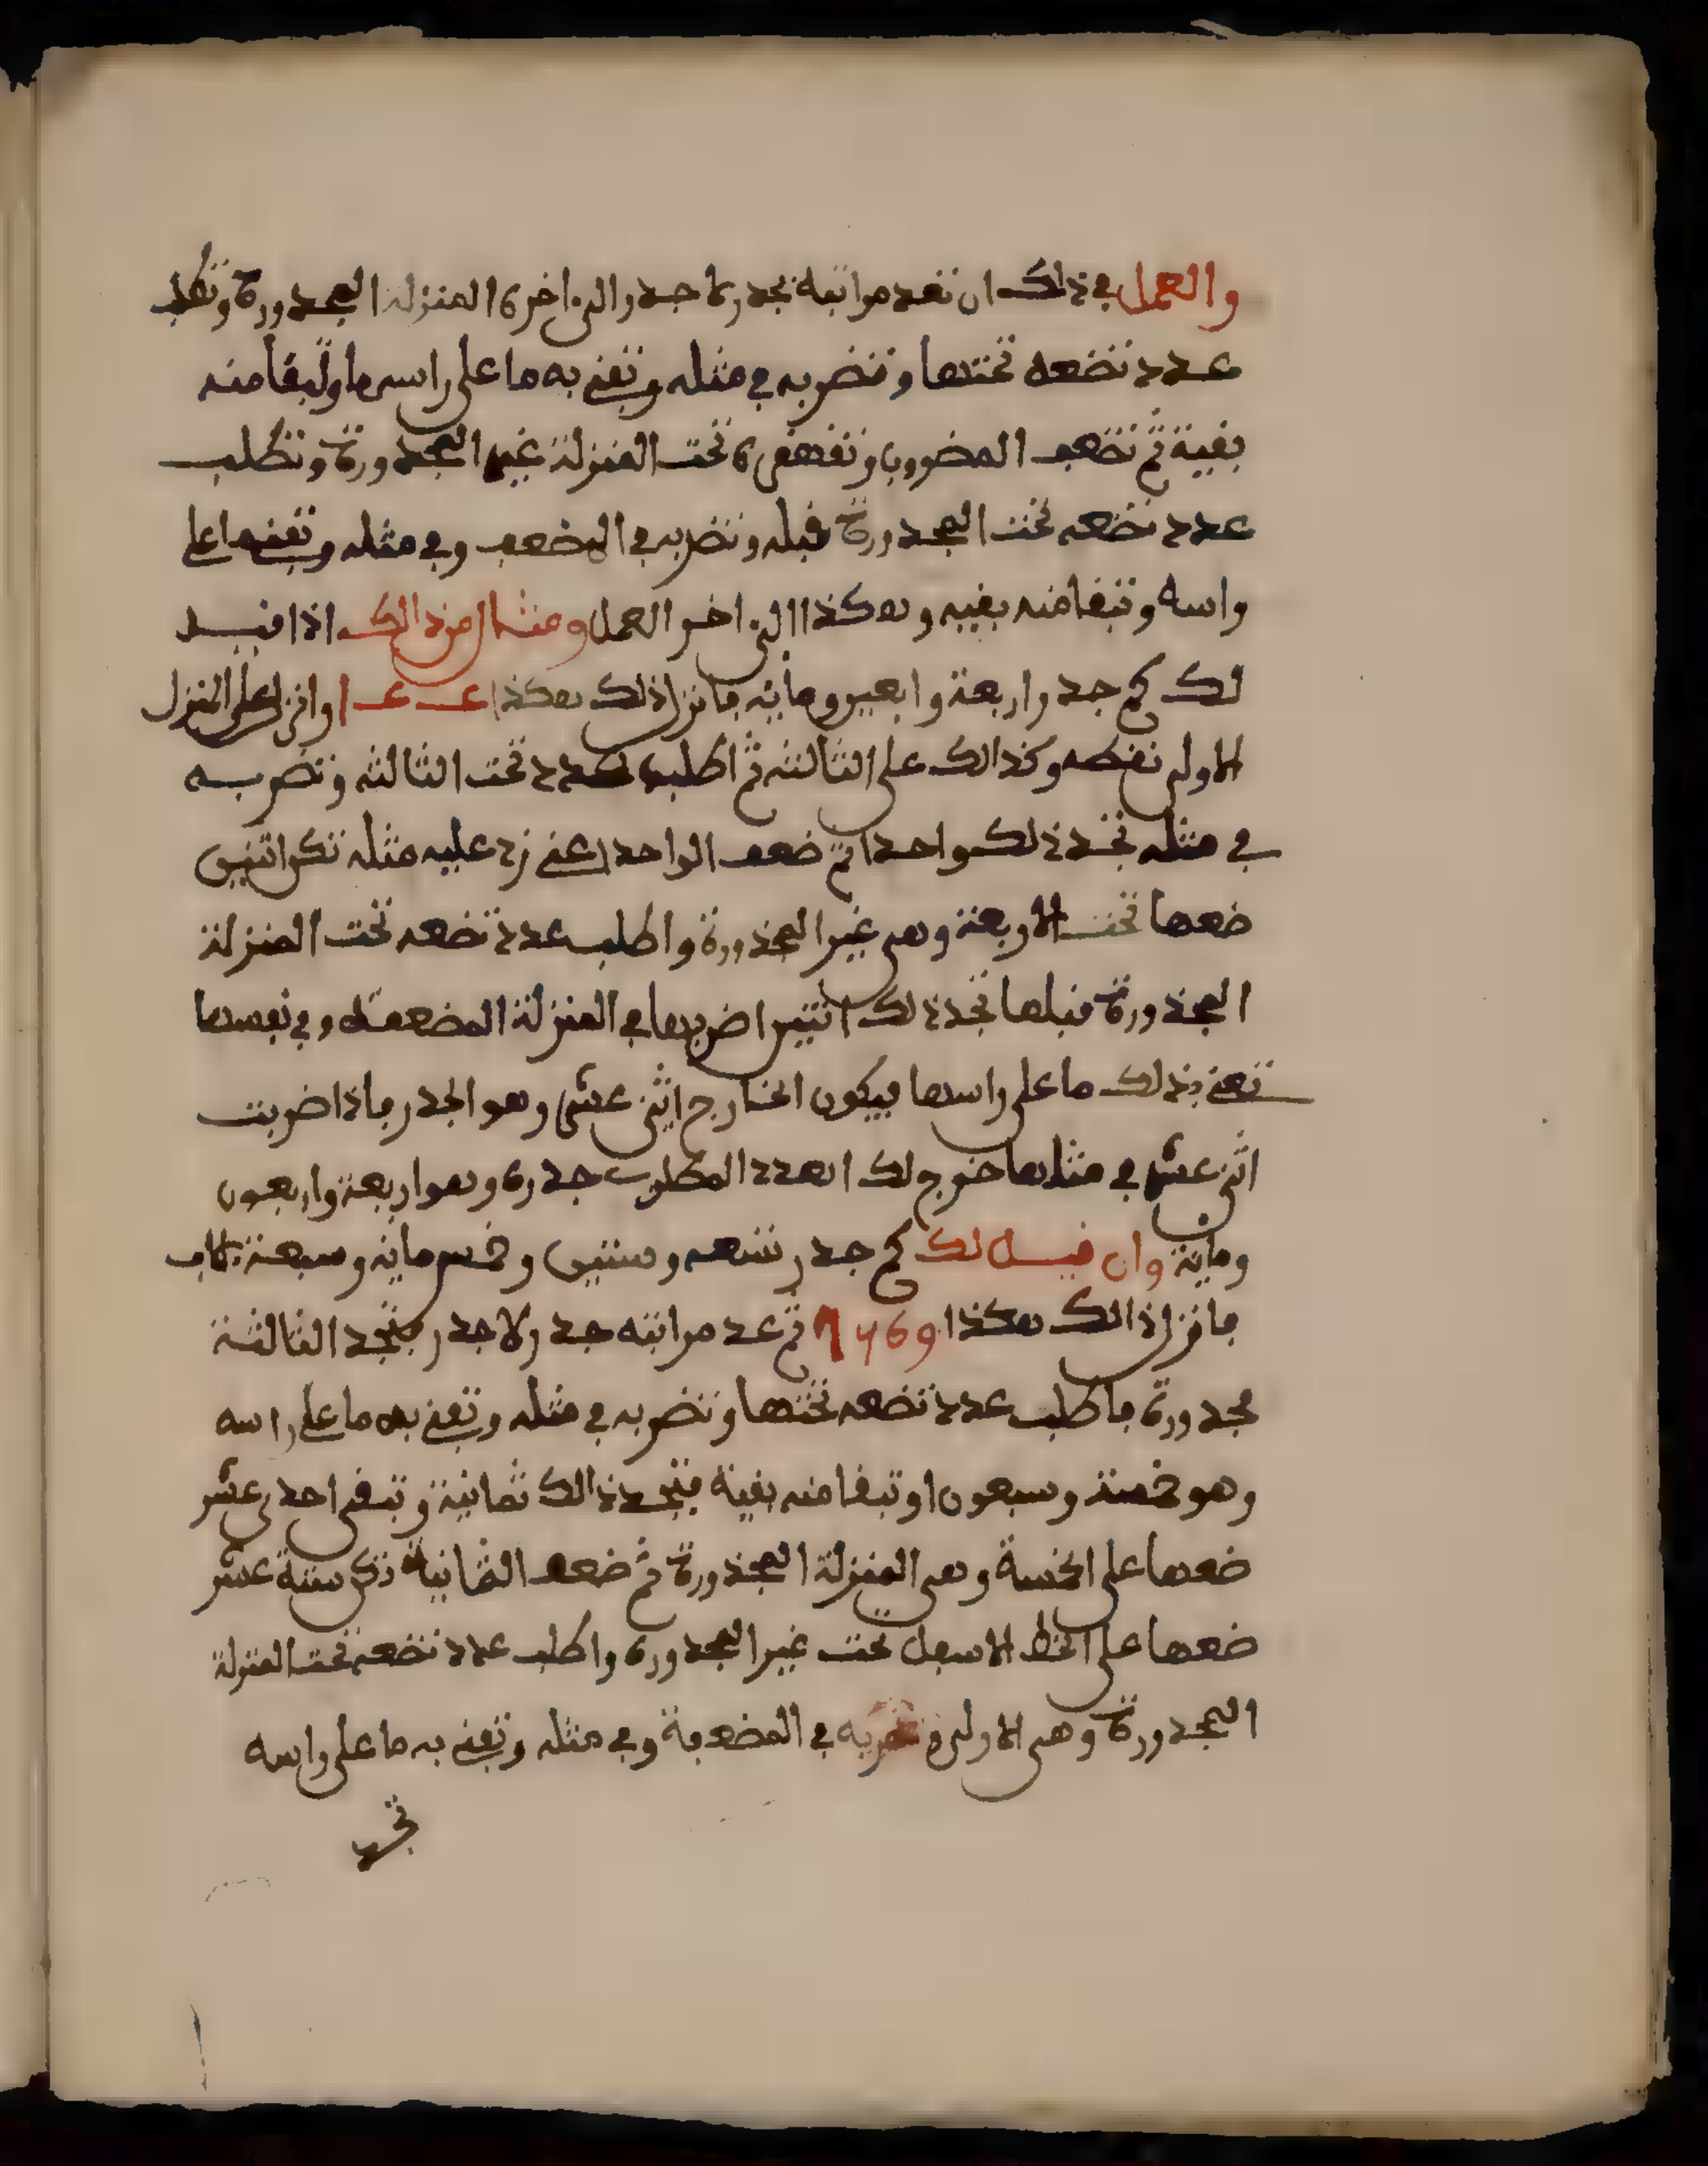 والعمل في ذلك ان تعد مراتبه بجدر لا جدر الى اخره المنزلة المجدورة وتطلب
عدد تضعه تحتها وتضربه في مثله وتفني به ما على راسها او تبقا منه
بقية ثم تضعف المضروب وتقهقره تحت المنزلة غير المجدورة وتطلب
عدد تضعه تحت المجدورة قبله وتضربه في المضعف وفي مثله وتفني ما على
راسه وتبقا منه بقيه وهكذا الى اخر العمل ومثال من ذالك اذا قيل
لك كم جدر اربعة واربعين ومائه فانزل ذلك هكذا ا عـ عـ وانزل على المنزل
الاولى نقطه وكذالك على الثالثه ثم اطلب عدد تحت الثالثه وتضربه
في مثله تجد ذلك واحدا ثم ضعف الواحد اعني زد عليه مثله تكن اثنين
ضعها تحت الاربعة وهي غير المجذورة واطلب عدد تضعه تحت المنزلة
المجذورة قبلها تجد ذلك اثنين اضربها في المنزلة المضعفة وفي نفسها
تفني بذلك ما على راسها فيكون الخارج اثنى عشر وهو الجدر فاذا ضربت
اثنى عشر في مثلها خرج لك العدد المطلوب جدره وهو اربعة واربعون
وماية وان قيل لك كم جدر تسعه وستين وخمس ماية وسبعة الاف
فانزل ذالك هكذا 7569 ثم عد مراتبه جدر لا جدر فتجد الثالثة
مجدورة فاطلب عدد تضعه تحتها وتضربه في مثله وتفني به ما على راسه
وهو خمسة وسبعون او تبقا منه بقية فتجد ذالك ثمانية وتبقى احدى عشر
ضعها على الخمسة وهي المنزلة المجذورة ثم ضعف الثمانية تكن ستة عشر
ضعها على الخط الاسفل تحت غير المجدورة واطلب عدد تضعه تحت المنزلة
المجدورة وهي الاولى وتضربه في المضعفة وفي مثله وتفني به ما على راسه
تجد